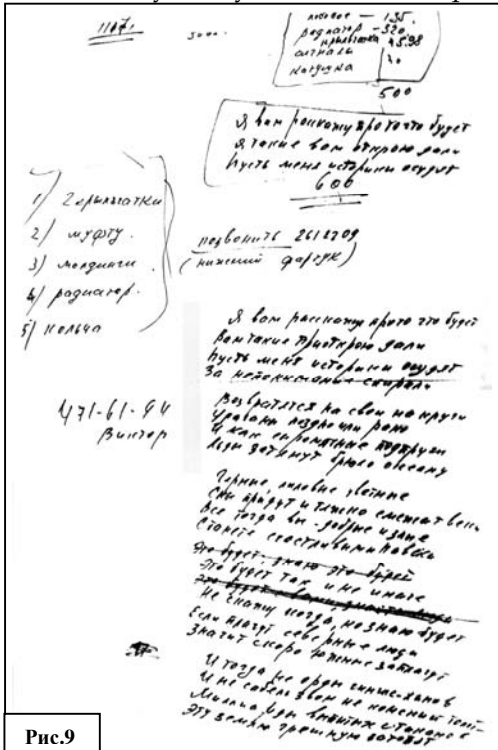 11071
3000.
135.
радиатор - 320
крыльчатка 45.98
сигналы
катушка 20
500
Я вам расскажу про то что будет
Я такие вам открою дали
Пусть меня историки осудят
600
1) 2 крыльчатки
2) муфту.
3) молдинги
4) радиатор.
5) кольца
позвонить 2612709
(нижний фартук)
Я вам расскажу про то что будет
Вам такие приоткрою дали
Пусть меня историки осудят
За непонимание спирали
471-61-94
Виктор
Возвратятся на свои на круги
Ураганы поздно или рано
И как сыромятные подпруги
Льды затянут брюхо океану
Черные, лиловые, цветные
Сны придут и тяжко смежат веки
Вот тогда вы - добрые и злые
Станете счастливыми навеки
Это будет, знаю это будет
Это будет так и не иначе
Не скажу когда, но знаю будет
Если плачут северные люди
Значит скоро южные заплачут
И тогда не орды чингис-ханов
И не сабель звон не конский топот
Миллиарды выпитых стаканов
Эту землю грешную затопят
Рис.9